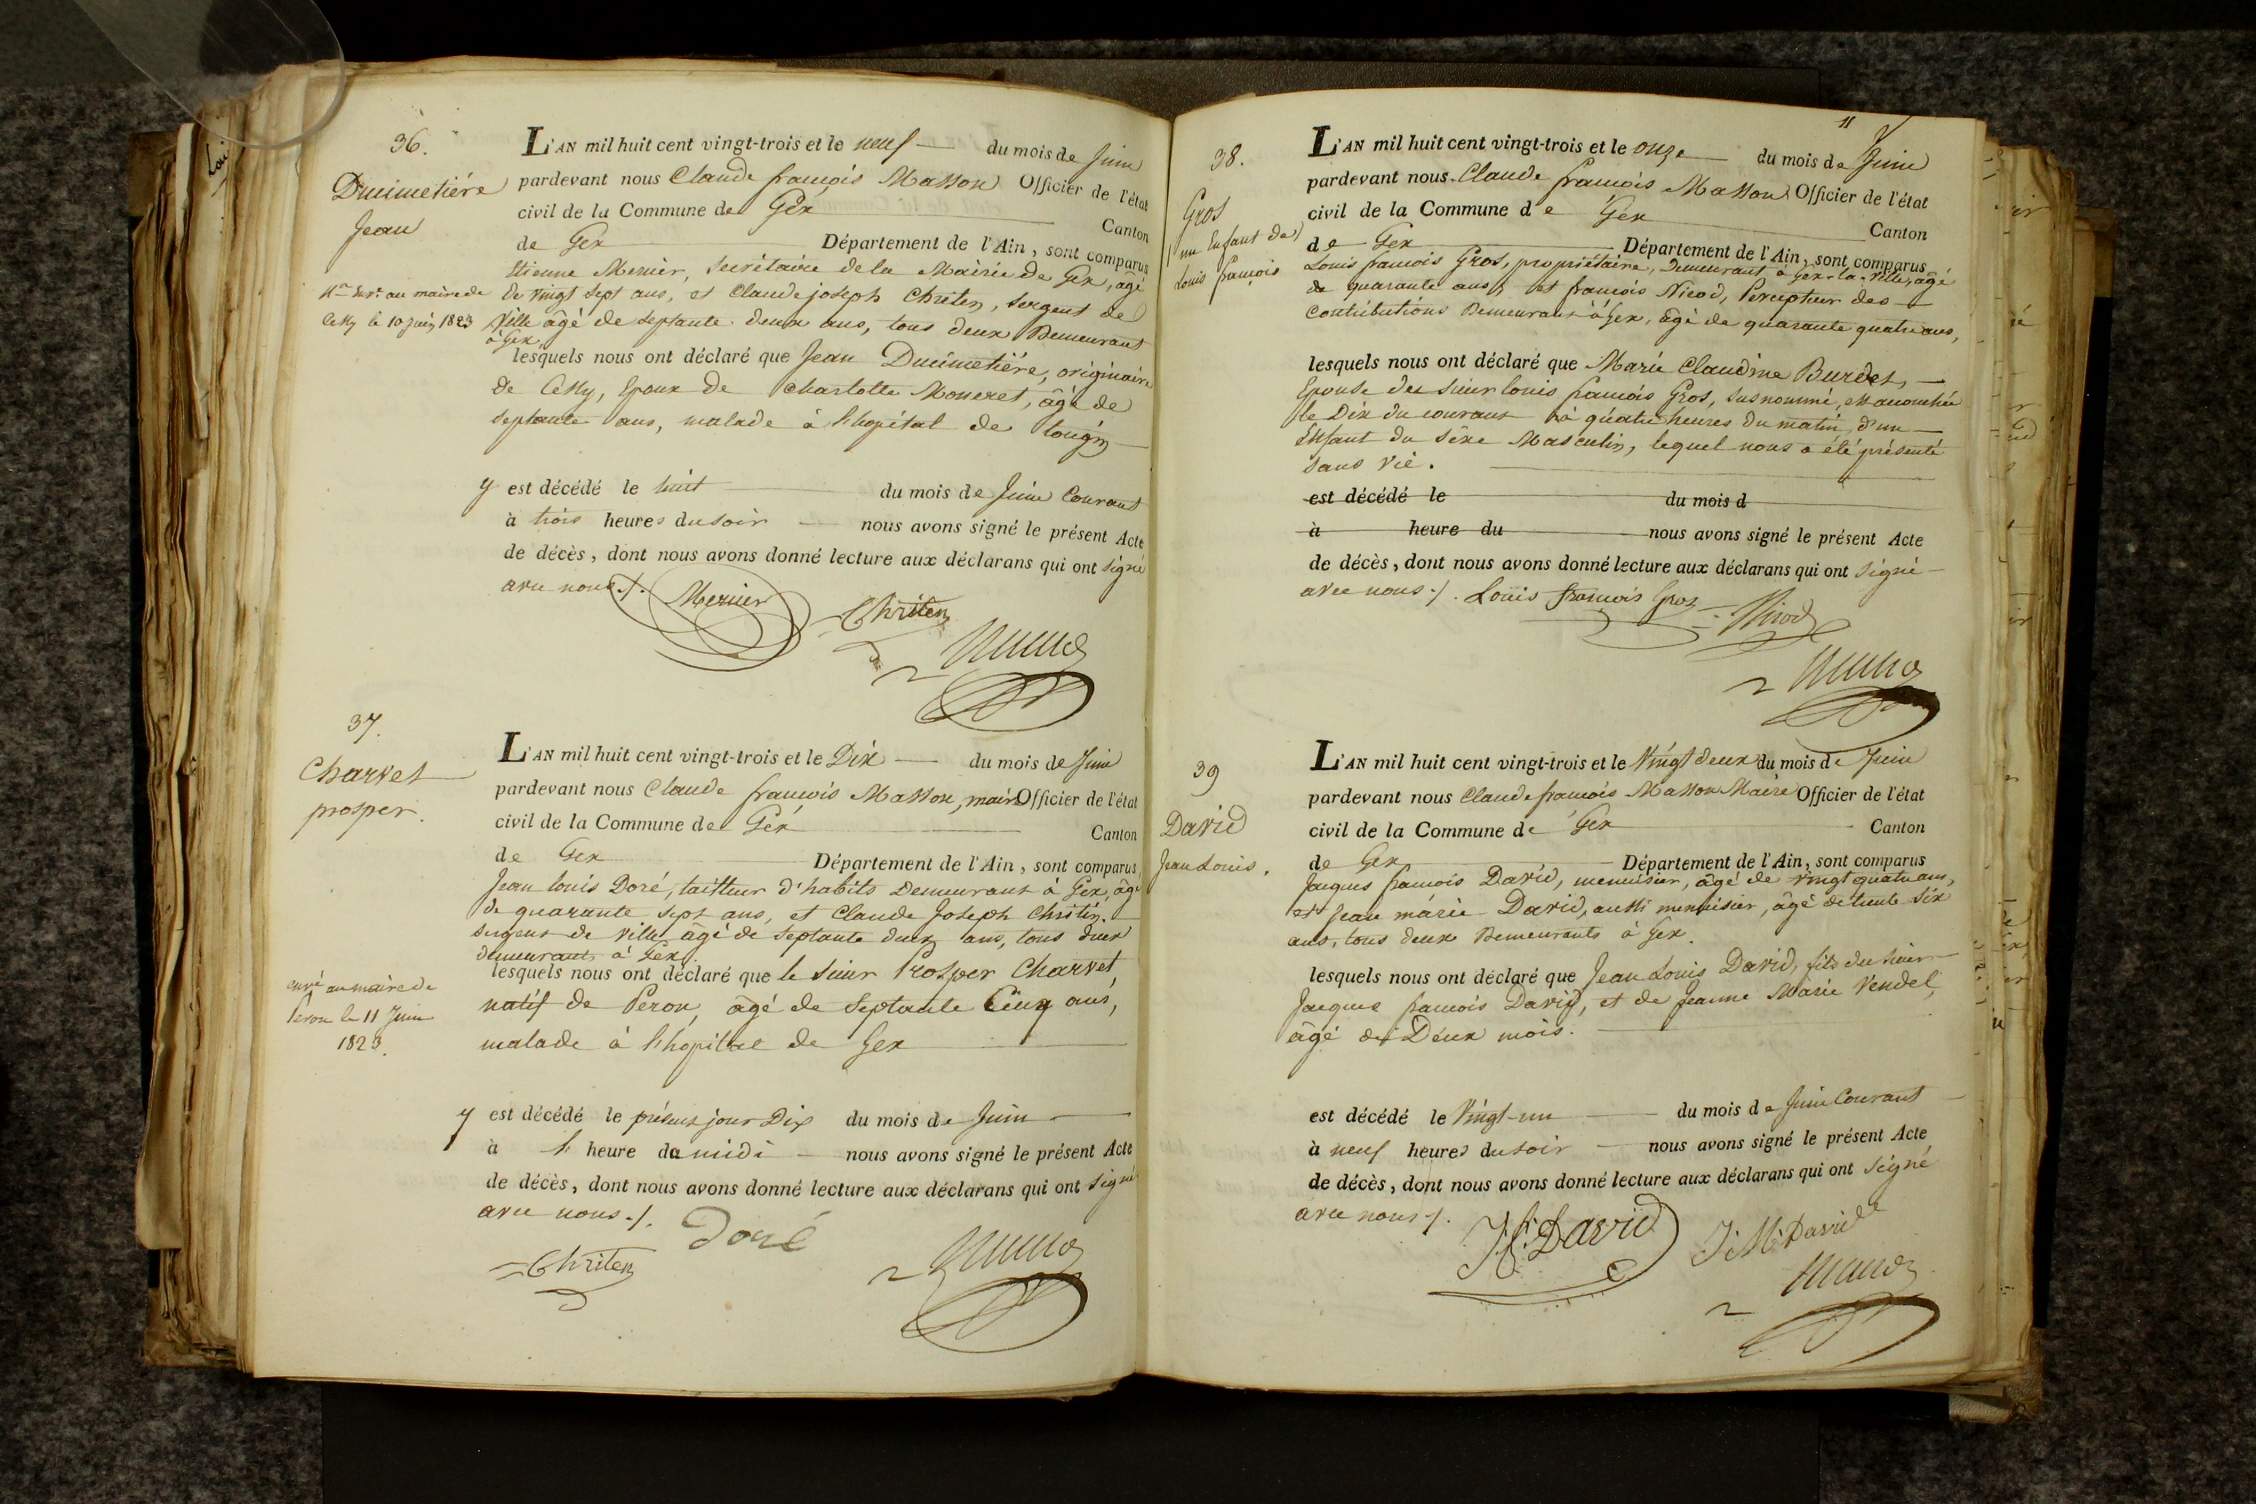 36.
Ducimetiére
Jean
au maire de
Cessy le 10 juin 1823
L'AN mil huit cent vingt-trois et le neuf du mois de Juin
pardevant nous Claude françois Masson Officier de l'état
civil de la Commune de Gex Canton
de Gex Département de l'Ain, sont comparus
Etienne Mercier, Secrétaire de la Mairie de Gex, âgé
de vingt sept ans, et Claude joseph Chriten, Sergent de
Ville âgé de septante deux ans, tous deux Demeurant
à Gex
lesquels nous ont déclaré que Jean Ducimetiére, originaire
de Cessy, Epoux de Charlotte Moneret, âgé de
septante ans, malade à l'hopital de tougin
y est décédé le huit du mois de Juin Courant
à trois heures du soir nous avons signé le présent Acte
de décès, dont nous avons donné lecture aux déclarans qui ont signé
avec nous ./. Mercier
Chriten
37.
Charvet
prosper.
envoié au maire de
Peron le 11 Juin
1823.
L'AN mil huit cent vingt-trois et le Dix du mois de Juin
pardevant nous Claude françois Masson, maire Officier de l'état
civil de la Commune de Gex Canton
de Gex Département de l'Ain, sont comparus
Jean louis Doré, tailleur d'habits Demeurant à Gex, âgé
de quarante sept ans, et Claude Joseph Christin.
sergent de ville âgé de Septante deux ans, tous deux
demeurants à Gex.
lesquels nous ont déclaré que le sieur Prosper Charvet
natif de Peron, âgé de Septante Cinq ans,
malade à l'hopital de Gex
y est décédé le présent jour Dix du mois de Juin
à l' heure de midi nous avons signé le présent Acte
de décès, dont nous avons donné lecture aux déclarans qui ont signé
avec nous ./. Doré
Chriten
11
38.
Gros
un Enfant de
Louis françois
L'AN mil huit cent vingt-trois et le onze du mois de Juin
pardevant nous Claude françois Masson Officier de l'état
civil de la Commune de Gex Canton
de Gex Département de l'Ain, sont comparus
Louis francois Gros, propriétaire, Demeurant à Gex-la-Ville, âgé
de quarante ans, et françois Nicod, Percepteur des
Contributions Demeurant à Gex, âgé de quarante quatre ans,
lesquels nous ont déclaré que Marie Claudine Burdet,
Epouse du sieur louis françois Gros, susnommé, est accouchée
le Dix du courant à quatre heures du matin, d'un
Enfant du sèxe Masculin, lequel nous a été présenté
sans vie.
est décédé le du mois d
à heure du nous avons signé le présent Acte
de décès, dont nous avons donné lecture aux déclarans qui ont signé
avec nous ./. Louis francois Gros Nicod
39
David
Jean Louis.
L'AN mil huit cent vingt-trois et le Vingt deux du mois de Juin
pardevant nous Claude françois Masson Maire Officier de l'état
civil de la Commune de Gex Canton
de Gex Département de l'Ain, sont comparus
Jacques francois David, menuisier, âgé de vingt quatre ans,
et Jean marie David, aussi menuisier, âgé de trente six
ans, tous deux Demeurants à Gex.
lesquels nous ont déclaré que Jean Louis David, fils du sieur
Jacques francois David, et de Jeanne Marie Vendel,
âgé de Deux mois.
est décédé le Vingt-un du mois de Juin Courant
à neuf heures du soir nous avons signé le présent Acte
de décès, dont nous avons donné lecture aux déclarans qui ont signé
avec nous ./. J.f. David J. M. David